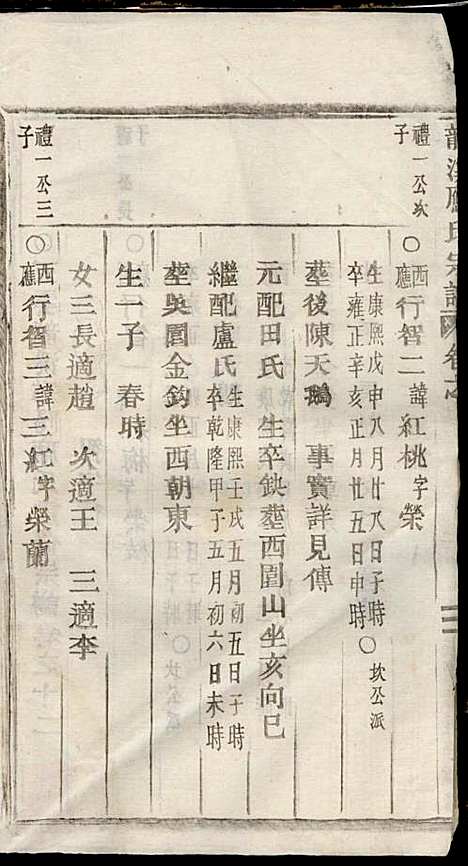 龍溪應氏宗譜 卷之
禮一公次子
〇西應行智二諱紅桃字榮
生康熙戊申八月廿八日子時〇坎公派
卒雍正辛亥正月廿五日申時
塟後陳天鵝 事實詳見傳
元配田氏 生卒缺塟西園山坐亥向巳
繼配盧氏 生康熙壬戌五月初五日子時
卒乾隆甲子五月初六日未時
塟吳園金鈎坐西朝東
生一子 春時
女三長適趙 次適王 三適李
禮一公三子
〇西應行智三諱三紅字榮蘭